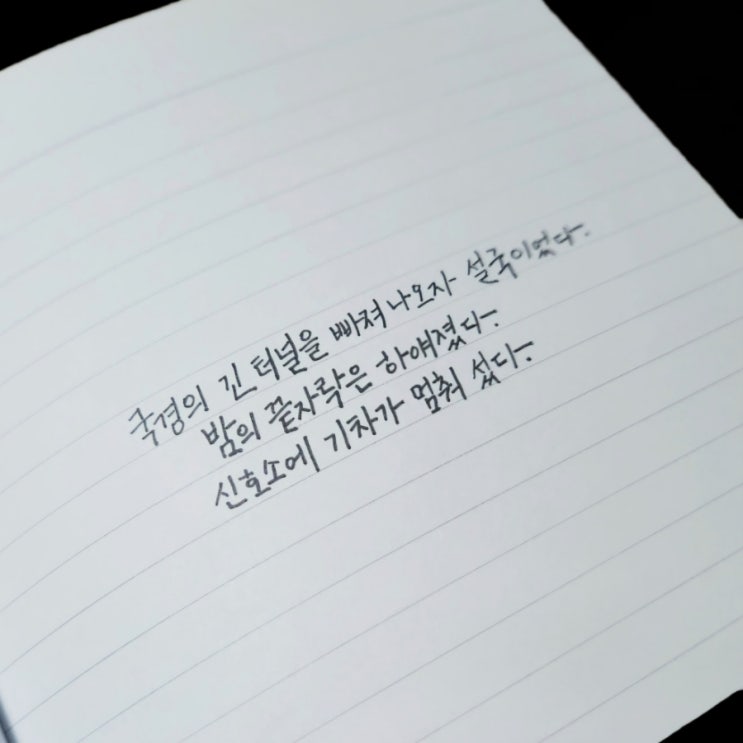 국경의 긴 터널을 빠져나오자 설국이었다.
밤의 끝자락은 하얘졌다.
신호소에 기차가 멈춰 섰다.